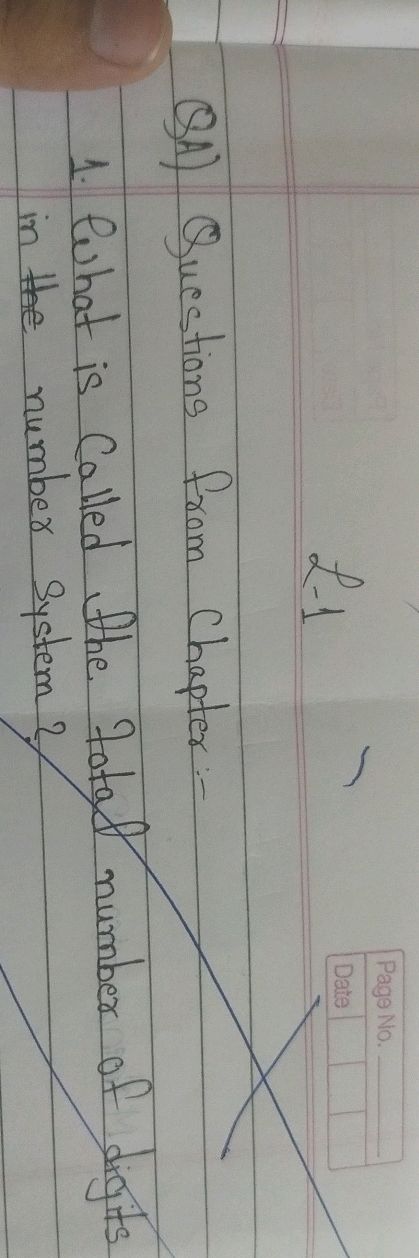 Page No.
Date
L-1
QA) Questions from Chapter:-
1. What is Called the Total number of digits
in the number System?